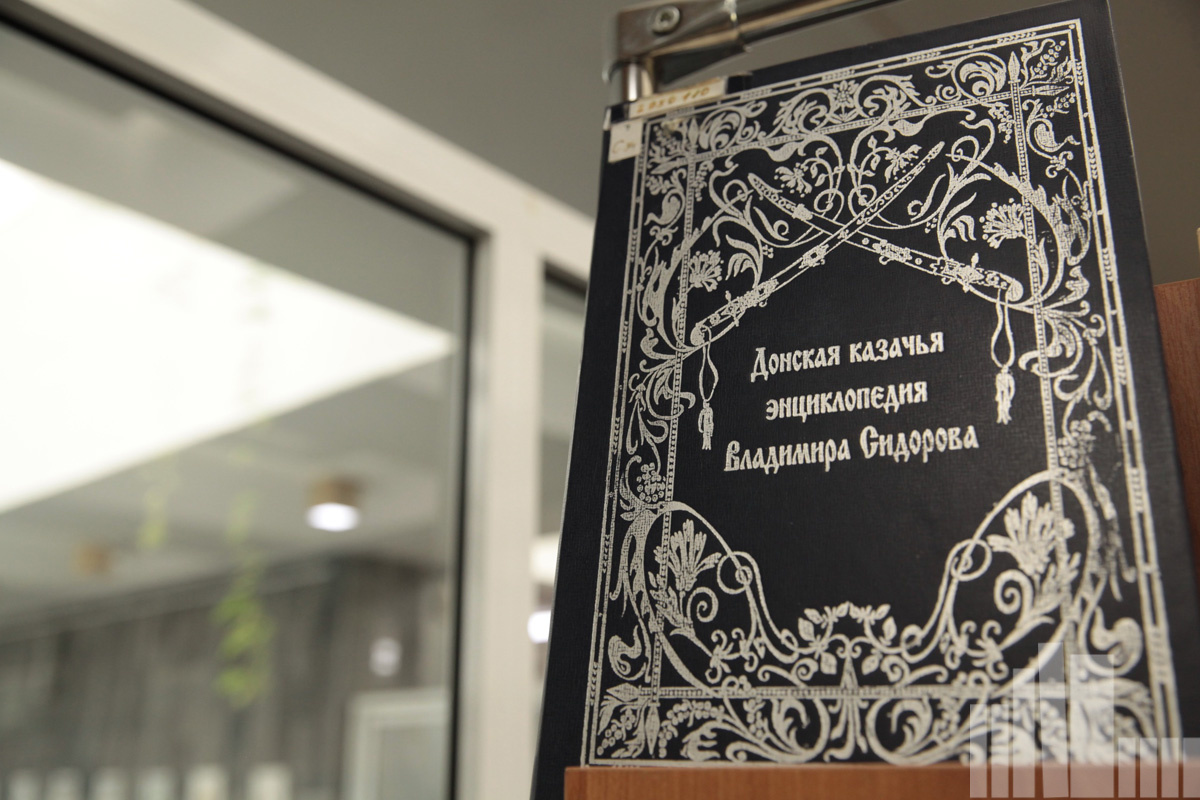 Донская казачья
энциклопедия
Владимира Сидорова